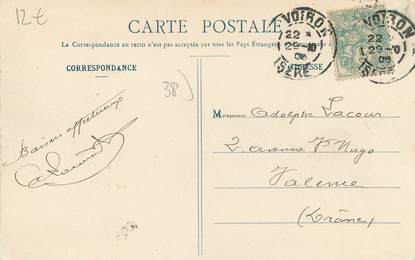 12€
CARTE POSTALE
La Correspondance au recto n'est pas acceptée par tous les Pays Étrangers
CORRESPONDANCE
ADRESSE
VOIRON
22
29-10
06
ISÈRE
VOIRON
22
29-10
06
ISÈRE
38)
Baisers affectueux
Monsieur Adolphe Lacour
2. avenue Vor Hugo
Valence
(Drôme)